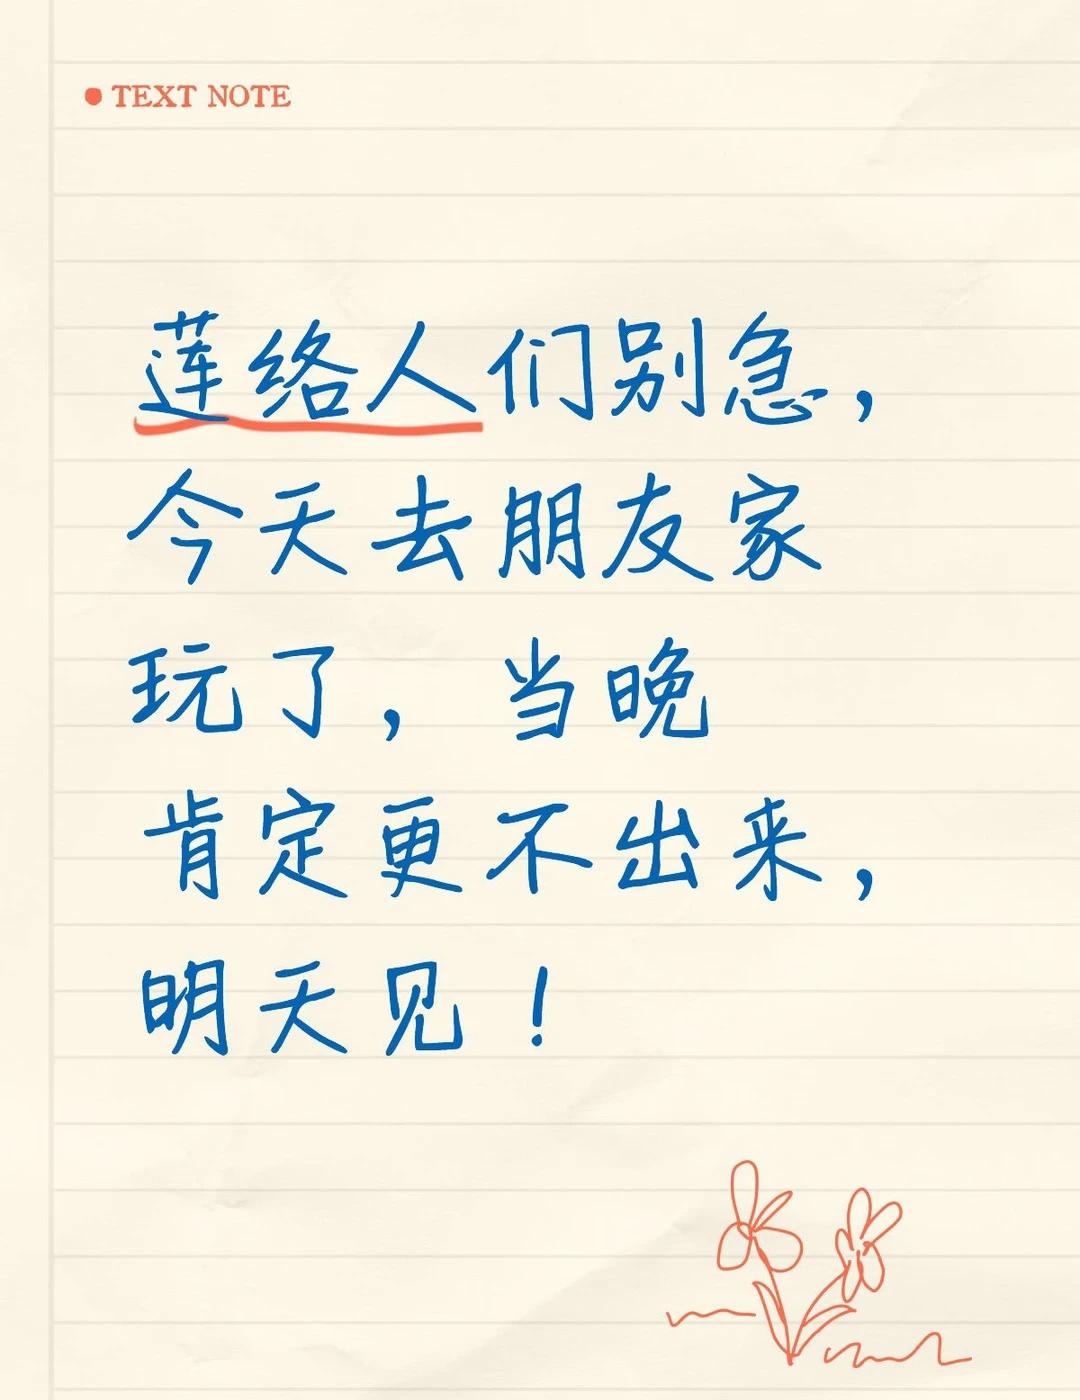 TEXT NOTE
莲络人们别急，
今天去朋友家
玩了，当晚
肯定更不出来，
明天见！